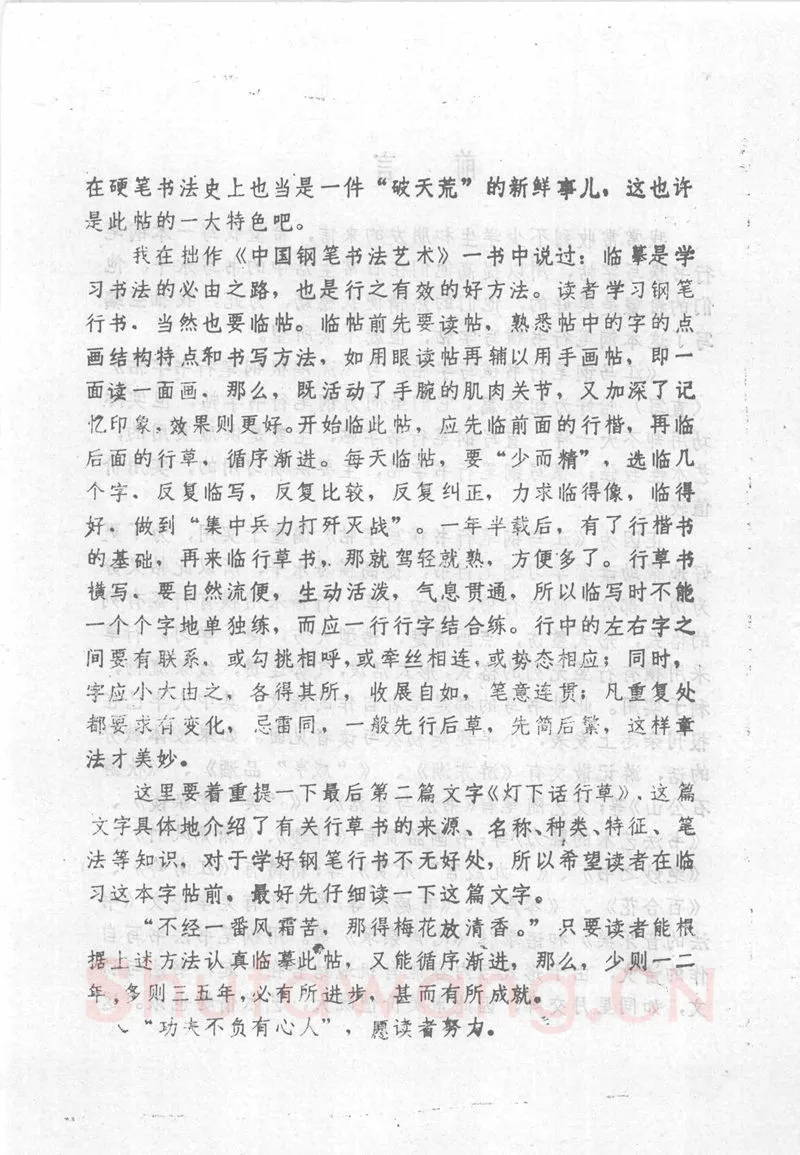 在硬笔书法史上也当是一件“破天荒”的新鲜事儿，这也许
是此帖的一大特色吧。
我在拙作《中国钢笔书法艺术》一书中说过：临摹是学
习书法的必由之路，也是行之有效的好方法。读者学习钢笔
行书、当然也要临帖。临帖前先要读帖，熟悉帖中的字的点
画结构特点和书写方法，如用眼读帖再辅以用手画帖，即一
面读一面画、那么，既活动了手腕的肌肉关节，又加深了记
忆印象、效果则更好。开始临此帖，应先临前面的行楷，再临
后面的行草，循序渐进。每天临帖，要“少而精”，选临几
个字、反复临写，反复比较，反复纠正，力求临得像，临得
好、做到“集中兵力打歼灭战”。一年半载后，有了行楷书
的基础，再来临行草书，那就驾轻就熟，方便多了。行草书
横写、要自然流便，生动活泼，气息贯通，所以临写时不能
一个个字地单独练，而应一行行字结合练。行中的左右字之
间要有联系、或勾挑相呼，或牵丝相连，或势态相应；同时，
字应小大由之，各得其所，收展自如，笔意连贯；凡重复处
都要求有变化，忌雷同，一般先行后草，先简后繁，这样章
法才美妙。
这里要着重提一下最后第二篇文字《灯下话行草》、这篇
文字具体地介绍了有关行草书的来源、名称、种类、特征、笔
法等知识，对于学好钢笔行书不无好处，所以希望读者在临
习这本字帖前、最好先仔细读一下这篇文字。
“不经一番风霜苦，那得梅花放清香。”只要读者能根
据上述方法认真临摹此帖，又能循序渐进，那么，少则一二
年，多则三五年，必有所进步，甚而有所成就。
“功夫不负有心人”，愿读者努力。
Shufawang.CN